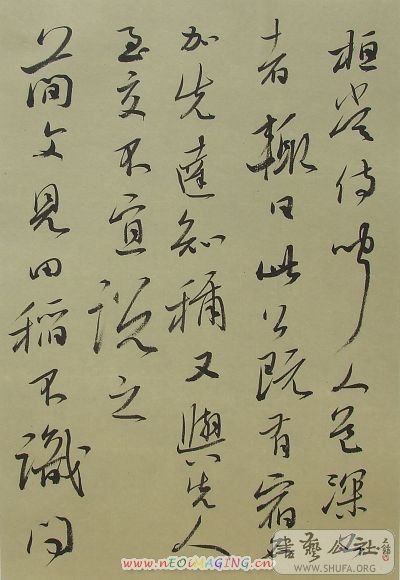 桓常侍聞人道深
者輒曰此公既有宿
加先達知稱又與先人
至交不宜說之
簡文見田稻不識問
書藝公社
WWW.SHUFA.ORG
www.nEOiMAGING.cn